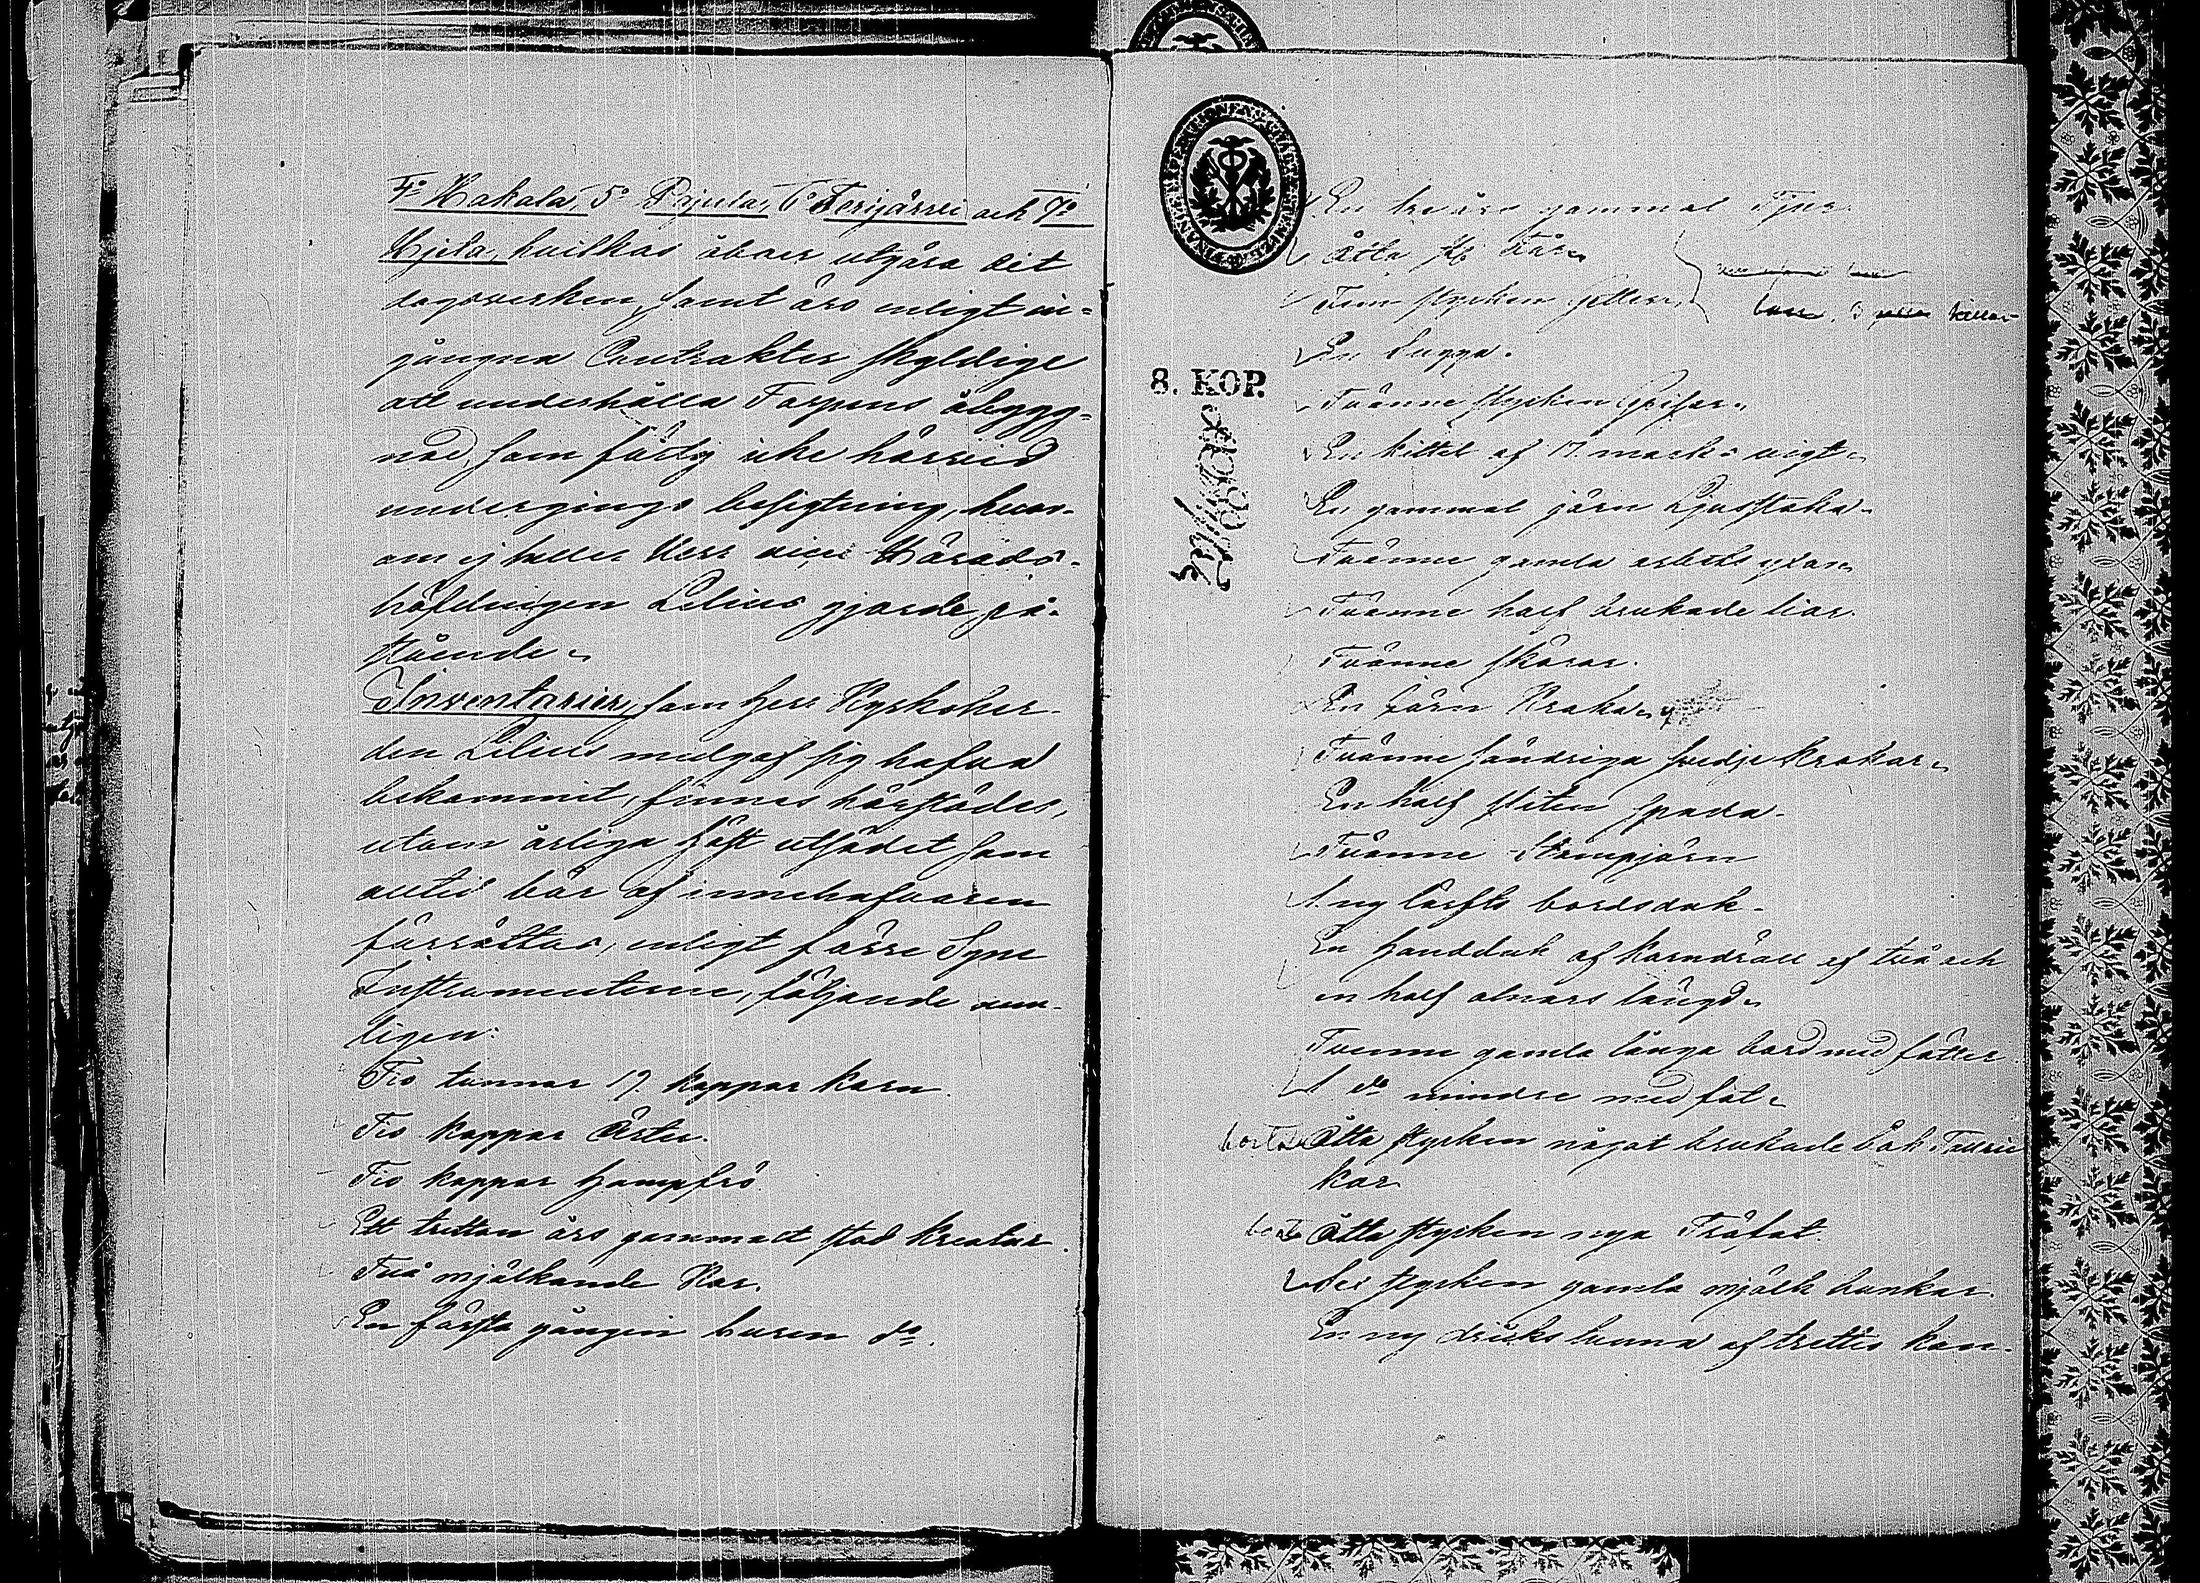 4:o Hakala, 5:o Pajula, 6:o Terijärvi och 7:o
Kjela, hvilkas åboer utgöra sit
dagsverken, samt äro enligt in=
gångna Contrakter skyldige
att underhålla Torpens åbygg=
nad som fördy icke härvid
undergingo besigtning, hvar-
om ej heller Herr vice Härads-
höfdingen Lilius gjorde på-
stående.
Inventarier, som Herr Kyrkoher-
den Lilius medgaf sig hafva
bekommit, finnes härstädes,
utom årliga höst utsädet som
altid bör af innehafvaren
förrättas, enligt förre Syne
Instrumenterne, följande nem-
ligen:
Tio tunnor 17 kappar Korn.
Tio kappar Ärter.
Tio kappar Hampfrö
Ett tretton års gammalt stod kreatur.
Två mjölkande Kor.
En första gången buren d:o.
En tre års gammal Tjur.
Åtta st. Får.
Fem stycken Getter.
killar
En Sugga.
Tvänne stycken Grisar.
En kittel af 17 marks vigt.
En gammal järn Ljusstaka.
Tvänne gamla arbets yxor.
Tvänne half brukade liar.
Tvänne skäror.
En järn Kraka.
Tvänne söndriga svedje Krokar.
En half sliten spada.
Tvänne Stämpjärn
1. ny lärfts bordsduk.
En handduk af korndräll af två och
en half alnars längd.
Tvenne gamla långa bord med fötter
1 d:o mindre med fot.
bort Åtta stycken något brukade Bok Tallric
kar.
bort Åtta stycken nya Träfat.
Sex stycken gamla mjölk bunkar.
En ny dricks tunna af trettio kan-
8. KOP.